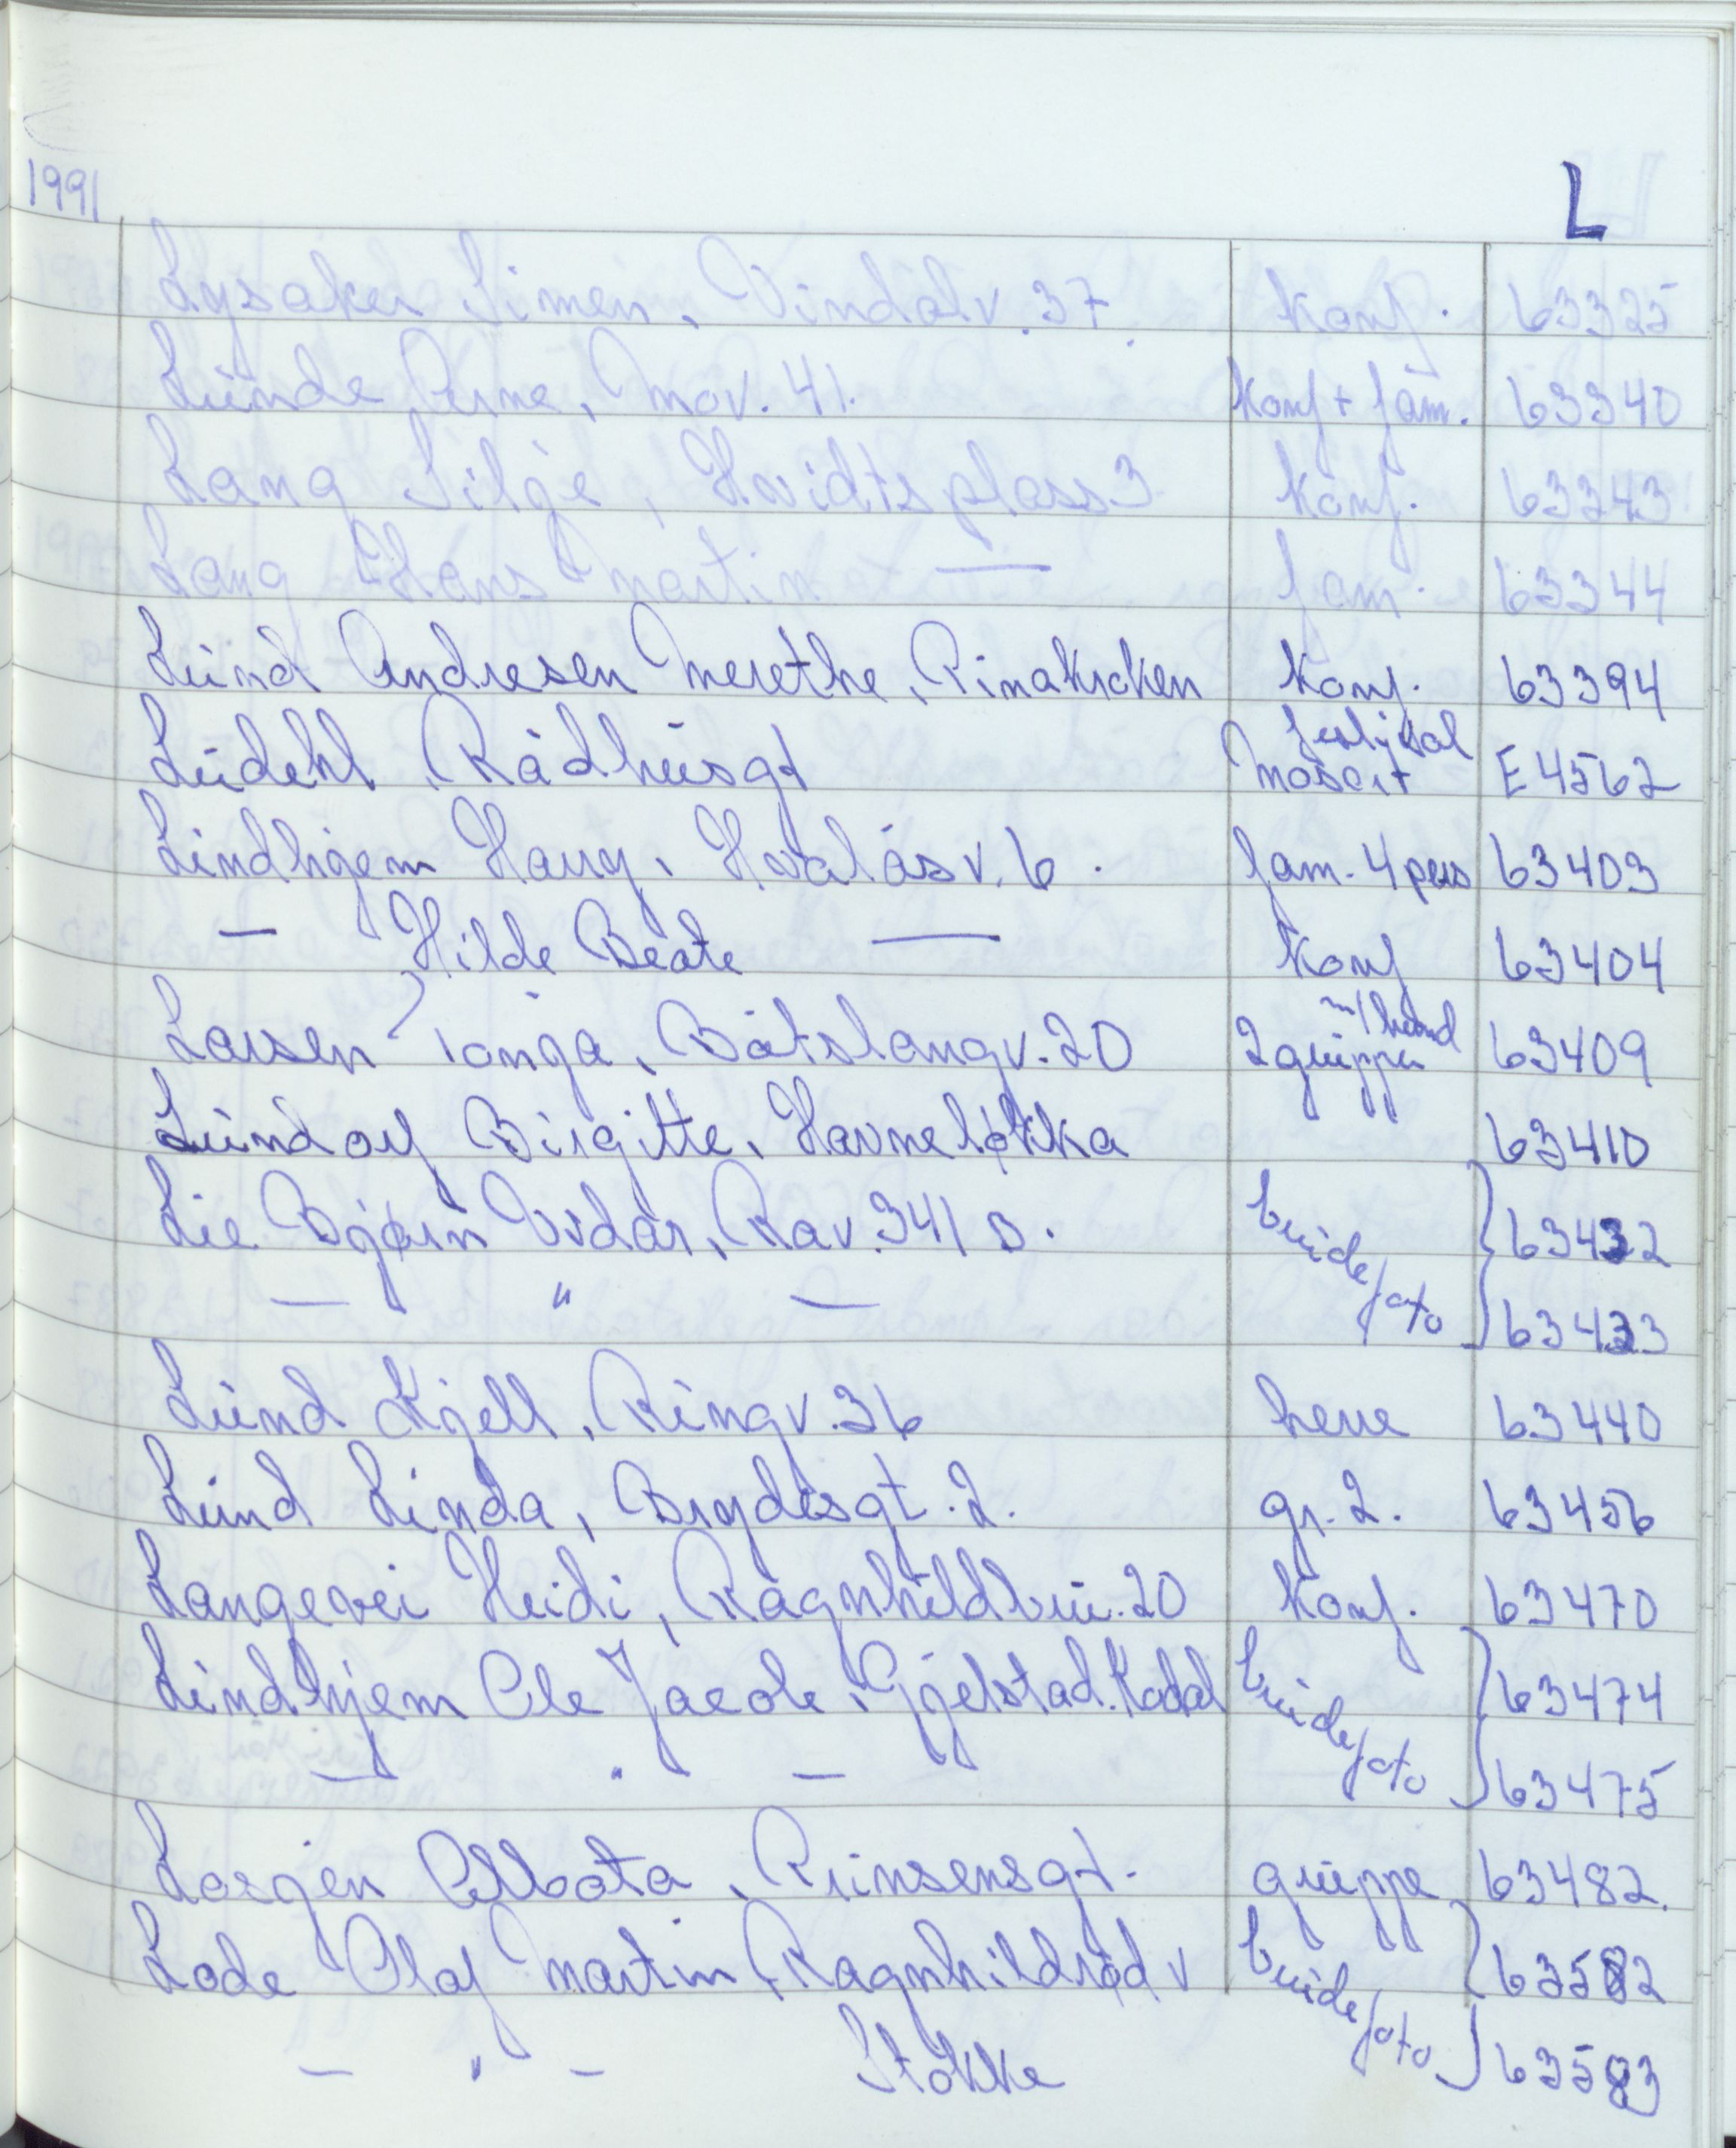 1991
L
Lysaker Simen, Vindalv. 37. konf. 63325
Lunde Arne, Mov. 41. konf + fam. 63340
Lang Silje, Hvidtsplass 3 konf. 63343
Lang Hans Martin — fam. 63344
Lund Andresen Merethe, Rinakroken konf. 63394
Lidehl Rådhusgt festival E4562
Lindhjem Haug, Hvalåsv. 6. fam. 4 pers 63403
— Hilde Beate — konf 63404
Larsen Tonga, Båtstangv. 20 2 grupper m/hund 63409
Lundoy Birgitte, Havneløkka 63410
Lie Bjørn Vidar, Rav. 341 B. brudefoto } 63432
— " — } 63433
Lund Kjell, Ringv. 36 herre 63440
Lund Linda, Brydesgt. 2. gr. 2. 63456
Langevei Heidi, 20 konf. 63470
Lindhjem Ole Jacob, Gjelstad. Kodal brudefoto } 63474
— " — } 63475
gruppe 63482.
Lode Olaf Martin, Ragnhildrød v brudefoto } 63582
— " — Stokke } 63583